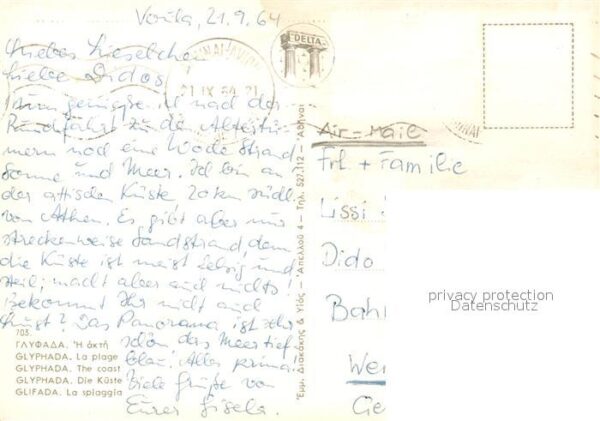 Voula, 21.9.64
Liebes Lieselchen
Liebe Didos
Nun genieße ich nach der
Rundfahrt zu den Altertü-
mern noch eine Woche Strand
Sonne und Meer. Ich bin an
der attischen Küste, 20 km südl.
von Athen. Es gibt aber nur
streckenweise Sandstrand, denn
die Küste ist meist felsig und
steil, macht aber auch nichts!
Bekommt Ihr nicht auch
Lust? Das Panorama ist sehr
schön das Meer tief
blau! Alles prima.
Viele Grüße von
Eurer Gisela.
703.
ΓΛΥΦΑΔΑ. Ἡ ἀκτή
GLYPHADA. La plage
GLYPHADA. The coast
GLYPHADA. Die Küste
GLIFADA. La spiaggia
Ἐμμ. Διακάκης & Υἱός - Ἀπελλοῦ 4 - Τηλ. 527.112 - Ἀθῆναι
DELTA
21 IX 64 21
Air-Mail
Frl + Familie
Lissi
Dido
Bah
We
Ge
privacy protection
Datenschutz